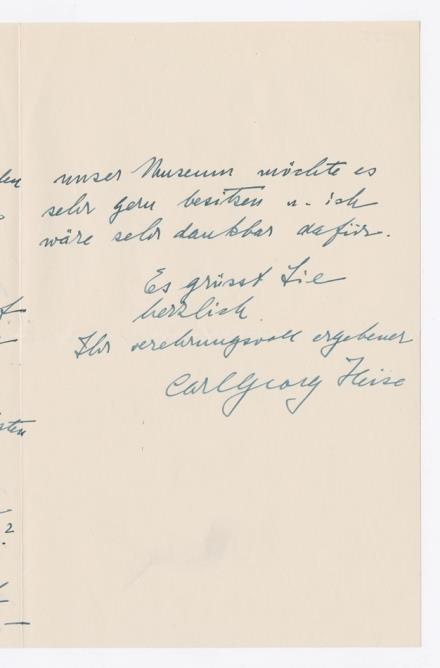 unser Museum möchte es
sehr gern besitzen u. ich
wäre sehr dankbar dafür.
Es grüsst Sie
herzlich
Ihr verehrungsvoll ergebener
Carl Georg Heise